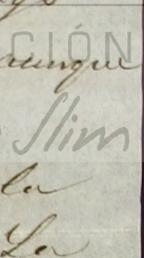 CIÓN
aunque
Slim
la
La